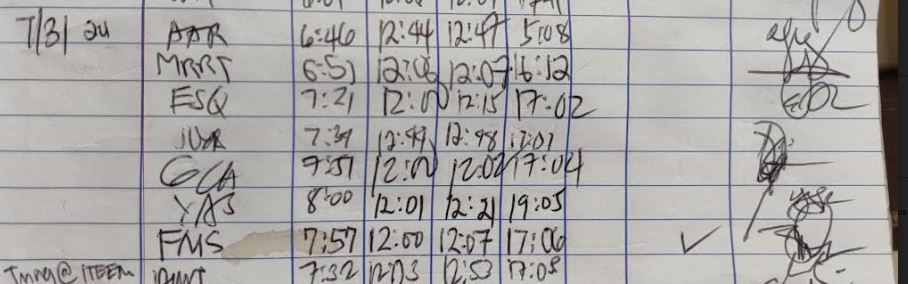 7/31 24 AAR 6:46 12:44 12:47 5:08
MRRT 6:51 12:06 12:07 16:12
ESQ 7:21 12:00 12:15 17:02
7:39 12:49 12:48 17:01
GCA 7:51 12:00 12:02 17:04
YAB 8:00 12:01 12:21 19:05
FMS 7:57 12:00 12:07 17:06
7:32 12:13 12:53 17:08